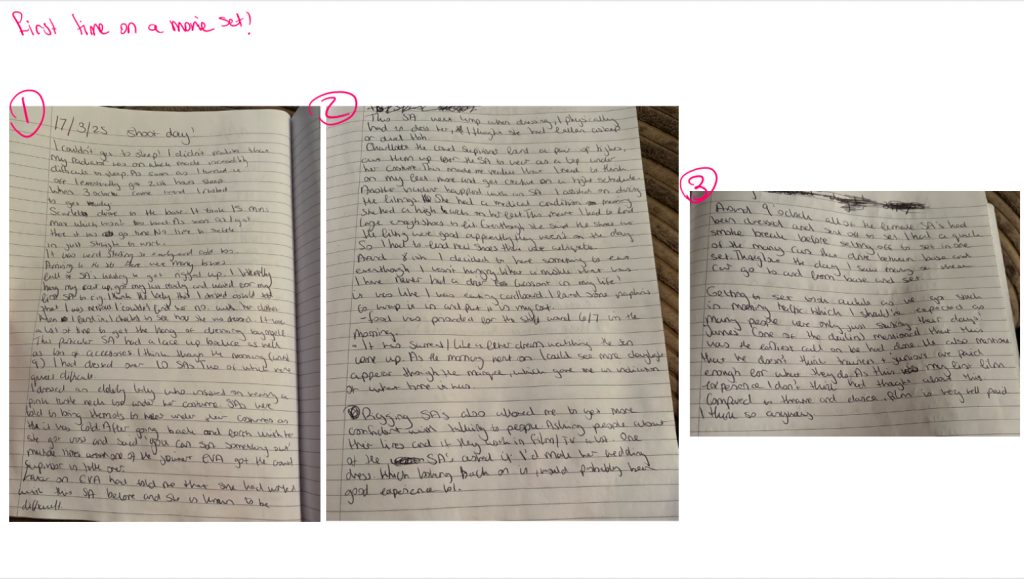 First time on a movie set!
1
17/3/25 shoot day!
I couldn't get to sleep! I didn't realise there
my radiator was on which made incredibly
difficult to sleep. As soon as I turned it
off I eventually got 2ish hours sleep
When 3 o'clock came round I rushed
to get ready
drove to the base. It took 15 mins
max which meant this time As soon as I got
there it was go time No time to settle
in just straight to work.
It was weird starting so early and
Arriving to the there were many buses
full of SA's waiting to get rigged up. I literally
hung my coat up, got my bag ready and waited for my
first SA to rig. I think the lady that I dressed could tell
that I was nervous I couldn't find her no. with her clothes
then I find it. I checked to see how she was dressed. It was
a lot of time to get the hang of dressing by myself
This particular SA had a lace up bodice as well
as lots of accessories I think through the morning (until
9) I had dressed over 10 SAs. Two of which were
quite difficult
I dressed an elderly lady who insisted on wearing a
pink knee under her costume. SAs were
told to bring thermals to wear under their costumes as
it was cold. After going back and forth with her
she got and said "you can sort something out"
one of the younger EVA got the crowd
supervisor to take over.
Later on EVA had told me that she had worked
with this SA before and she is known to be
difficult.
2
This SA went limp when dressing, I physically
had to dress her, I thought she had fallen asleep
or died tbh.
Charlotte the crowd supervisor found a pair of tights,
cut them up for the SA to wear as a top under
her costume This made me realise that I need to think
on my feet more and get creative on a tight schedule
Another incident happened with an SA I assisted on during
the fittings. She had a medical condition meaning
she had a high on her feet. This meant I had to find
large enough shoes to fit. Eventhough she said the shoes
the fitting were good apparently they weren't on the day
So I had to find new shoes that were adequate.
Around 8ish I decided to have something to eat
eventhough I wasn't hungry
I have never had a dry croissant in my life!
It was like I was eating cardboard I found some napkins
to bump it in and put it in my coat.
- food was provided for the until 6/7 in the
morning.
- It was surreal / like a fever dream watching the sun
come up. As the morning went on I could see more daylight
appear through the marquee, which gave me an indication
on what time it was.
Rigging SA's also allowed me to get more
confident with talking to people. Asking people about
their lives and if they work in film/TV a lot. One
of the SA's asked if I'd made her wedding
dress which looking back on it, would probably been
good experience lol.
3
Around 9 o'clock all of the female SA's had
been dressed and sent off to set. I had a quick
smoke break before setting off to set in one
of the many cars that drive between base and
set. Throughout the day I saw many a stream
cars go to and from base and set.
Getting to set took awhile as we got stuck
in morning traffic which I should've expected as
many people were only just starting their days!
James (one of the dailies) mentioned that this
was the earliest call on he had done. He also mentioned
that he doesn't think trainees + juniors are paid
enough for what they do. As this was my first film
experience I don't think I had thought about this
Compared to theatre and dance film is very well paid
I think so anyway